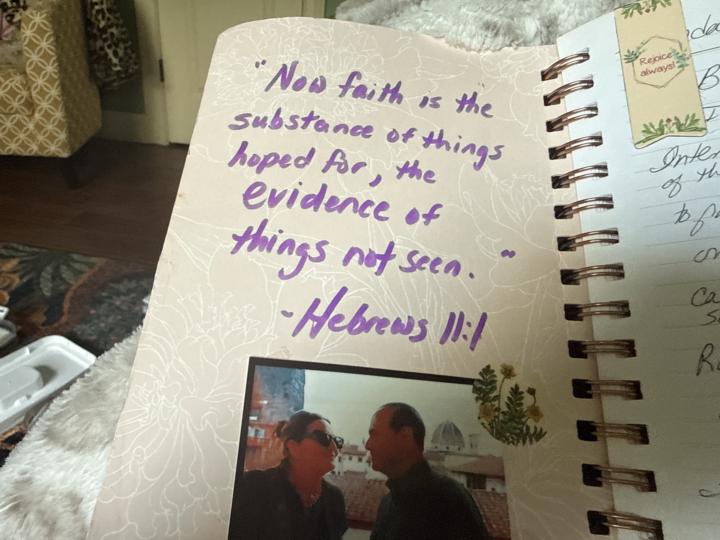 "Now faith is the
substance of things
hoped for, the
evidence of
things not seen."
-Hebrews 11:1
Rejoice
always!
of th